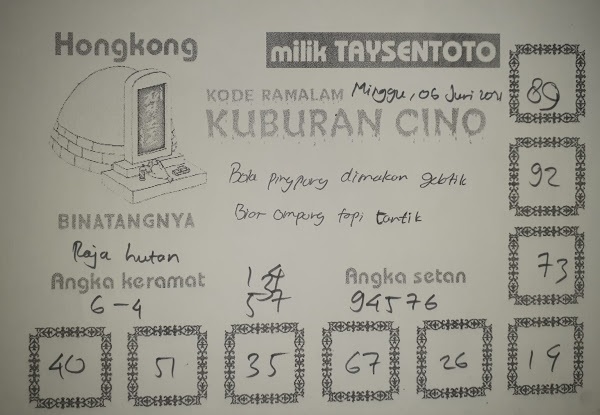 Hongkong
milik TAYSENTOTO
KODE RAMALAM Minggu, 06 Juni 2021
KUBURAN CINO
89
Bola pingpung dimakan gebtik
92
Biar ompung tapi tantik
BINATANGNYA
Raja hutan
73
Angka keramat
Angka setan
6-4
57
94576
40
51
35
67
26
19